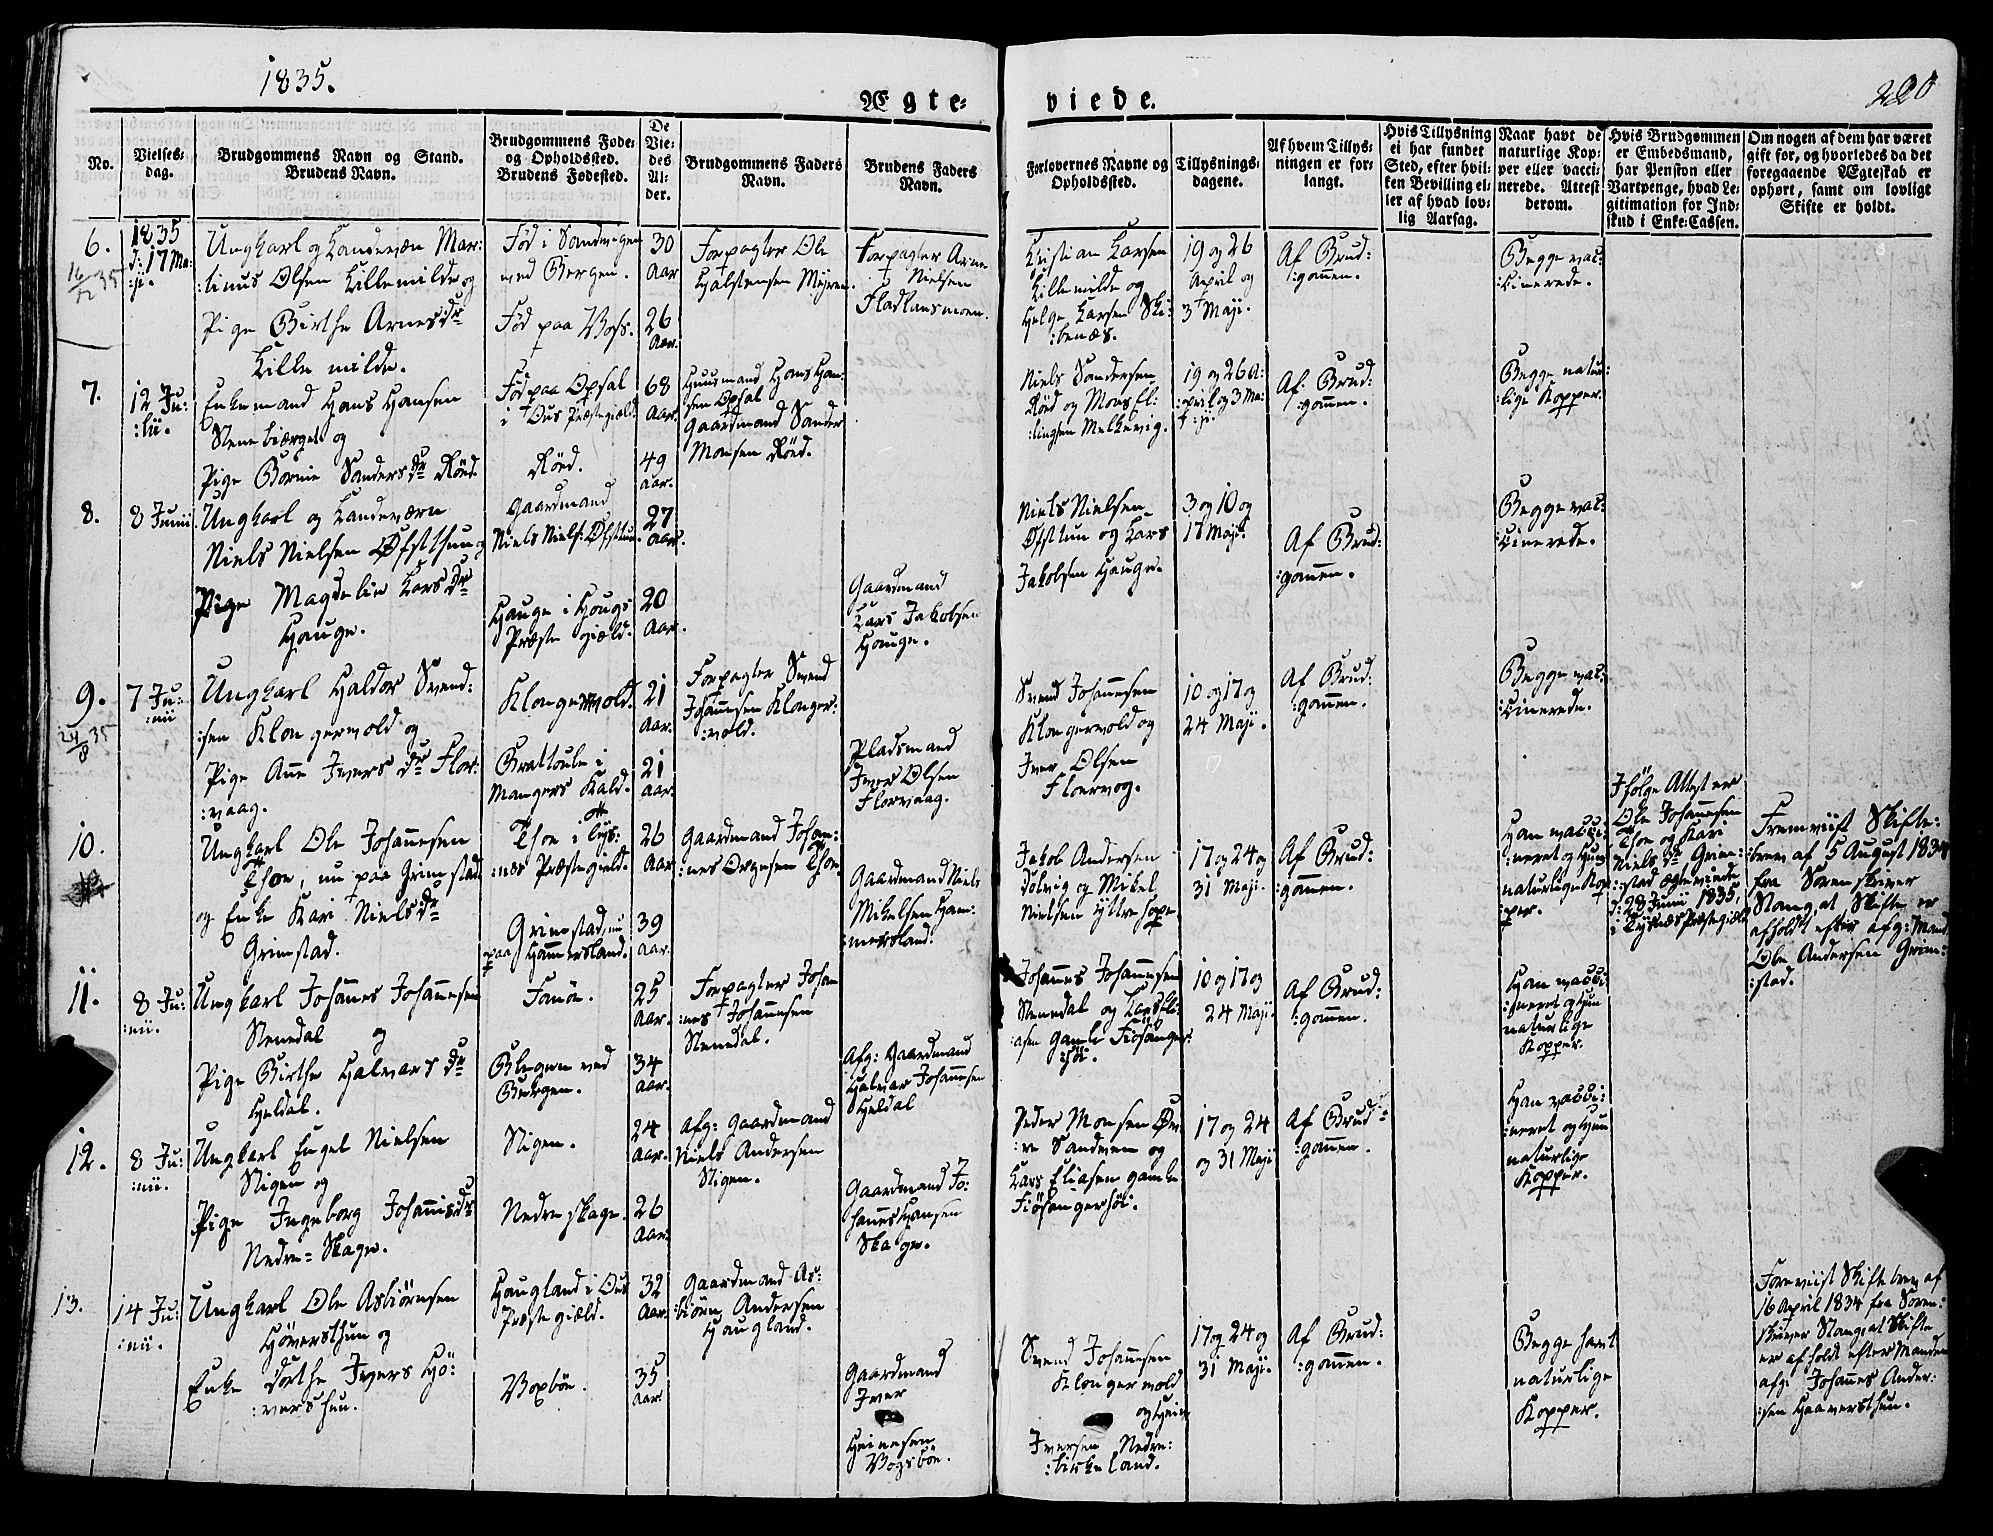 1835.
Ægte-
viede.
220
No.
Vielses-
dag.
Brudgommens Navn og Stand.
Brudens Navn.
Brudgommens Føde-
og Opholdssted.
Brudens Fødested.
De
Vie-
des
Al-
der.
Brudgommens Faders
Navn.
Brudens Faders
Navn.
Forlovernes Navne og
Opholdssted.
Tillysnings-
dagene.
Af hvem Tillys-
ningen er for-
langt.
Hvis Tillysning
ei har fundet
Sted, efter hvil-
ken Bevilling el-
ler af hvad lov-
lig Aarsag.
Naar havt de
naturlige Kop-
per eller vacci-
nerede. Attest
derom.
Hvis Brudgommen
er Embedsmand,
har Pension eller
Vartpenge, hvad Le-
gitimation for Ind-
skud i Enke-Cassen.
Om nogen af dem har været
gift før, og hvorledes da det
foregaaende Ægteskab er
ophørt, samt om lovligt
Skifte er holdt.
6.
16/12 35
1835
d: 17 Ma:
:ji.
Ungkarl og Landeværn Mar:
:tinus Olsen Lillemilde og
Pige Birthe Arnesdr
Lille milde.
Fød i Sandvigen
ved Bergen.
Fød paa Voss.
30
Aar
26
Aar.
Forpagter Ole
Halstensen Myren.
Forpagter Arne
Nielsen
Fladkansmoen.
Kristian Larsen
Lillemilde og
Helge Larsen Ski:
:benæs.
19 og 26
April og
3 Maji.
Af Brud:
:gomen.
Begge vac:
:cinerede.
7.
12 Ju:
:lii.
Enkemand Hans Hansen
Stenebiærget og
Pige Bornie Sandersdr Röed.
Fød paa Opsal
i Ous Præstegield.
Röed.
68
Aar.
49
Aar.
Huusmand Hans Han:
sen Opsal
Gaardmand Sander
Monsen Röed.
Niels Sandersen
Röed og Mons El:
:lingsen Melkevig.
19 og 26 A:
:pril og 3 Ma:
:ji.
Af Brud:
:gomen.
Begge natur:
:lige Kopper.
8.
8 Junii
Ungkarl og Landeværn
Niels Nielsen Øfsthun og
Pige Magdelie Larsdr
Hauge.
Gaardmand
Niels Niels: Øfsttun.
Hauge i Hougs
Præste gield.
27
Aar.
20
Aar.
Gaardmand
Lars Jakobsen
Hauge.
Niels Nielsen
Øfsttun og Lars
Jakobsen Hauge.
3 og 10 og
17 Maji.
Af Brud:
:gomen.
Begge vac:
:cinerede.
9.
24/8 35
7 Ju:
:nii
Ungkarl Haldor Svend:
:sen Klongervold og
Pige Ane Iversdr Flor:
:vaag.
Klongervold.
Brattoule i
Mangers Kald.
21
Aar.
21
Aar.
Forpagter Svend
Johanesen Klonger:
:vold.
Pladsmand
Iver Olsen
Florvaag.
Svend Johanesen
Klongervold og
Iver Olsen
Floervog.
10 og 17 og
24 Maji.
Af Brud:
:gomen.
Begge vac:
:cinerede.
10.
Ungkarl Ole Johanesen
Thoe, nu paa Grimstad
og Enke Kari Nielsdr
Grimstad.
Thoe i Tys:
:næs Præstegield.
Grimstad, nu
paa Hammersland.
26
Aar
39
Aar.
Gaardmand Johan:
:nes Orgesen Thoe
Gaardmand Niels
Mikelsen Ham:
:mersland.
Jakob Andersen
Dolvig og Mikel
Nielsen ytre Hope.
17 og 24 og
31 Maji.
Af Brud:
:gomen.
Han vacci:
:neret og Hun
naturlige Kop
:per.
Ifölge Attest er
Ole Johanesen
Thoe og Kari
Nielsdr Grim:
:stad ægteviede
d: 28 Junii 1835,
i Tysnæs Præstegield.
Fremviist Skifte:
:brev af 5 August 1834
fra Sorenskriver
Stang, at Skifte er
afholdt efter afg: Mand
Ole Andersen Grim:
:stad.
11.
8 Ju:
:nii.
Ungkarl Johanes Johanesen
Stenedal og
Pige Birthe Halvarsdr
Heldal.
Fanöe.
Blegen ved
Bergen.
25
Aar.
34
Aar.
Forpagter Johan
:nes Johanesen
Stenedal.
Afg: Gaardmand
Halvar Johanesen
Heldal
Johanes Johanesen
Stenedal og Lars Eli:
:asen Gamle Fiösanger:
:höi.
10 og 17 og
24 Maji.
Af Brud:
:gomen.
Han vacci:
:neret og Hun
naturlige
Kopper.
12.
8 Ju:
:nii.
Ungkarl Engel Nielsen
Stigen og
Pige Ingeborg Johanisdr
Nedre-Skage.
Stigen.
Nedre skage.
24
Aar.
26
Aar.
Afg: Gaardmand
Niels Andersen
Stigen.
Gaardmand Jo:
hanes Hansen
Skage.
Peder Monsen Öv:
:re Sandven og
Lars Eliasen gamle
Fiösangerhöi.
17 og 24
og 31 Maji
Af Brud:
:gomen.
Han vacci:
:neret og Hun
naturlige
Kopper.
13.
14 Ju:
:nii.
Ungkarl Ole Asbiörnsen
Höversthun og
Enke Dorthe Ivers Hö:
:versthun.
Haugland i Ous
Præstegield.
Voxböe.
32
Aar.
35
Aar.
Gaardmand As:
:biörn Andersen
Haugland.
Gaardmand
Iver
Heinesen
Vogsböe.
Svend Johanesen
Klongervold
og Hein
Iversen Nedre:
:birkeland.
17 og 24 og
31 Maji.
Af Brud:
:gomen.
Begge havt
naturlige
Kopper.
Foreviist Skiftebrev af
16 April 1834 fra Soren:
skriver Stang, at Skifte
er afholdt efter Manden
afg: Johanes Ander:
:sen Haaversthun.